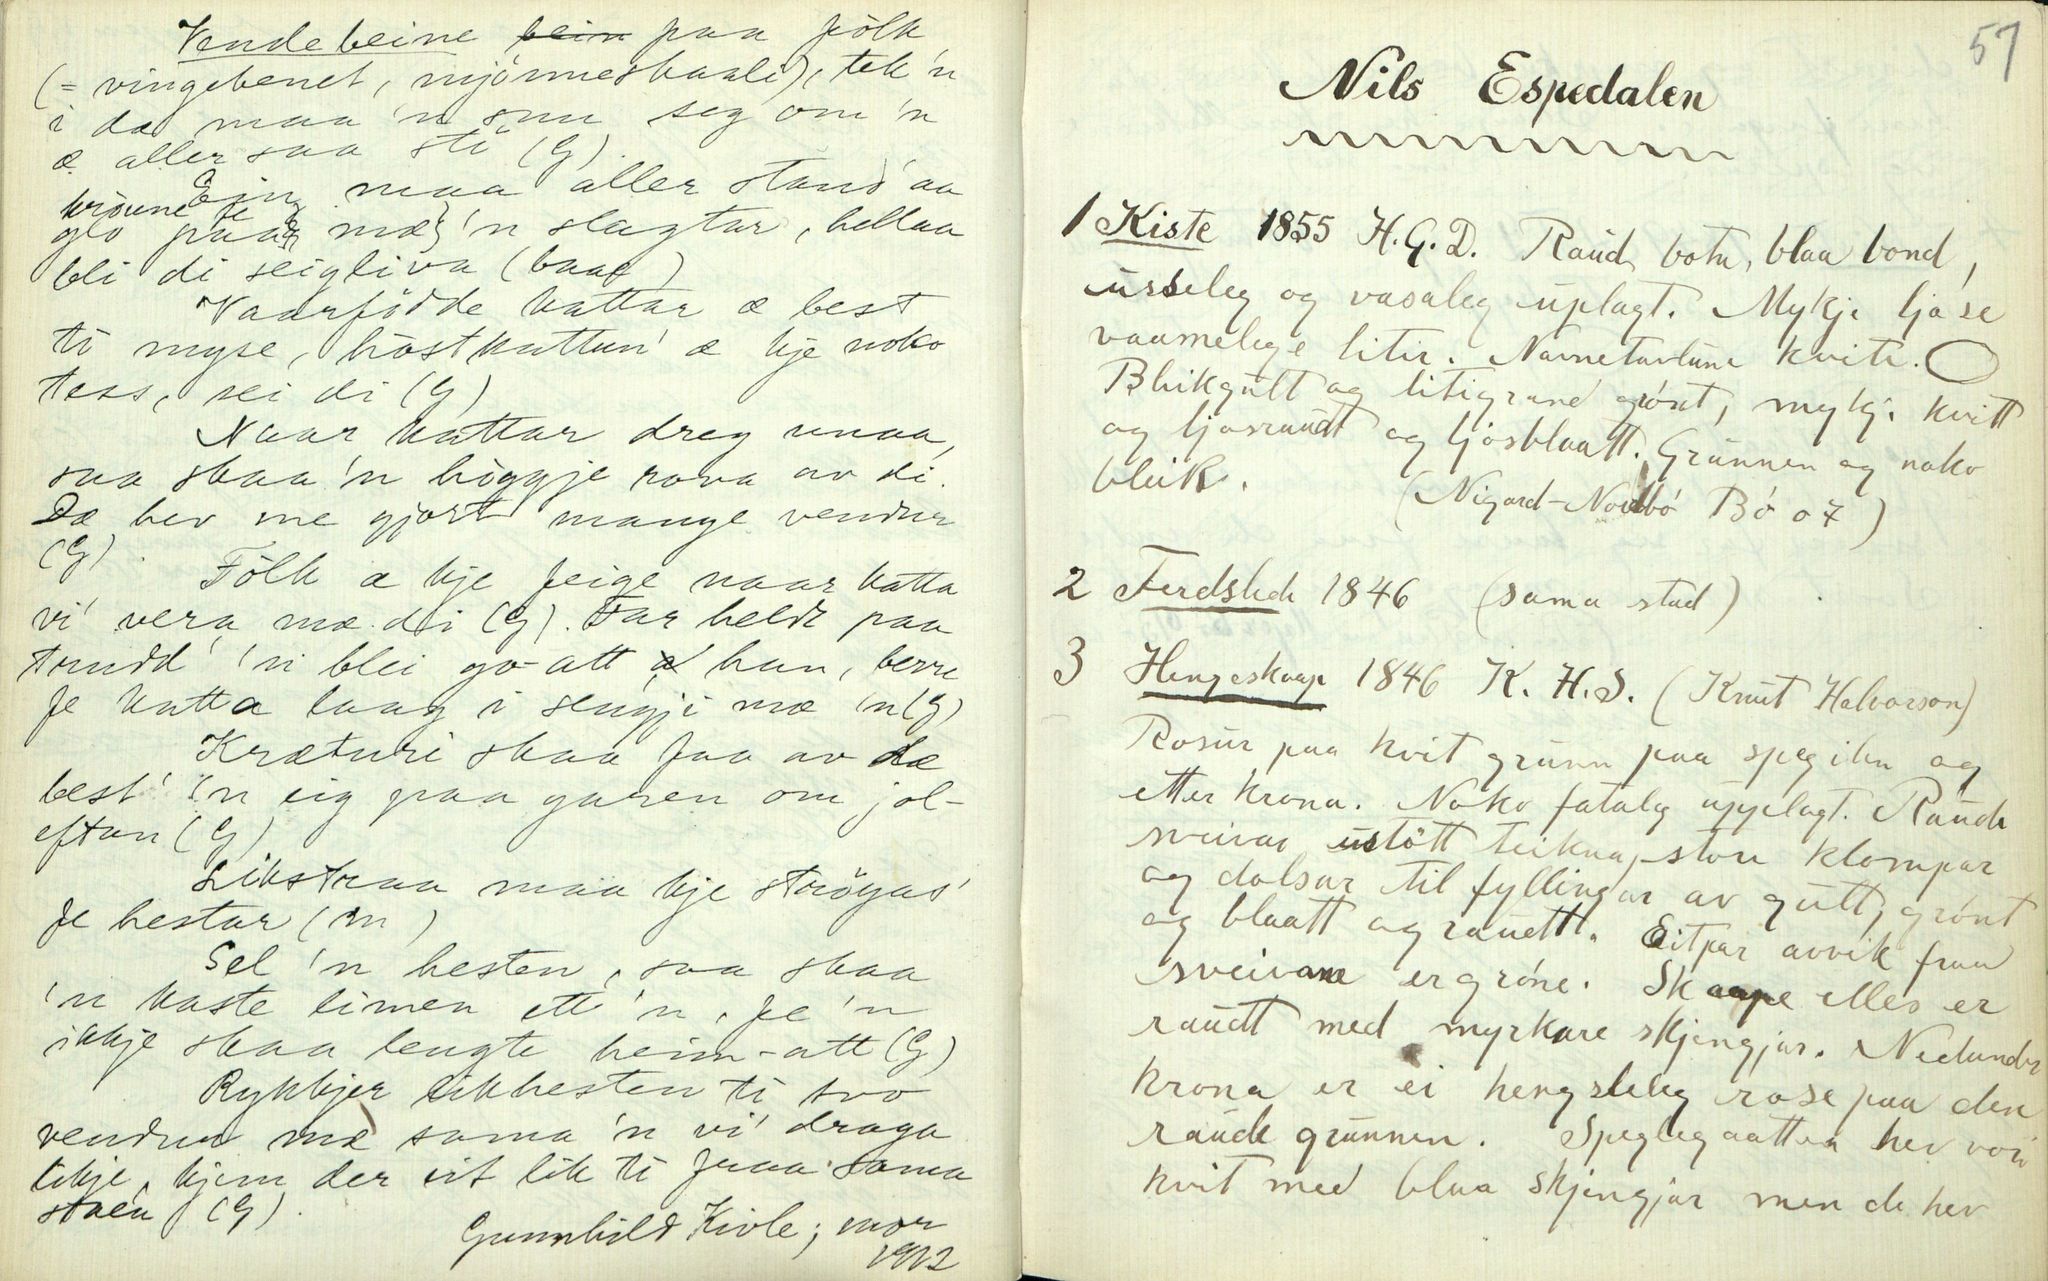 Vendebeine bein paa fôlk
(= vingebenet, mjónneskaali), tek 'n
i dæ maa 'n snu seg om 'n
æ aller saa sti (G)
Ein maa aller stand' aa
krôune te
glo paa, mæ 'n slagtar, hellaa
bli di seigliva (baae)
Vaarfôdde kattar æ best
ti myse, hôstkattun' æ kje noko
tess, sei di (G)
Naar kattar dreg unaa,
saa skaa 'n hôggje rova av di.
Dæ hev me gjort mange vendur
(G).
Fôlk æ kje feige naar katta
vi' vera mæ di (G). Far heldt paa
trudd' 'n blei go-att han, berre
fe katta laag i sengji mæ 'n (G)
Kræturi skaa faa av dæ
best' 'n eig paa garen om jol-
eftan (G)
Likstraa maa kje strôyas'
fe hestar (m)
Sel 'n hesten, saa skaa
'n kaste limen ett 'n, fe 'n
ikkje skaa lengte heim-att (G)
Rykkjer likhesten ti tvo
vendur mæ sama 'n vi' draga
likje, kjem der eit lik ti fraa sama
staen (G).
Gunnhild Kivle; mor
1912
57
Nils Espedalen
1 Kiste 1855 H.G.D. Raud botn, blaa bond,
usseleg og vasaleg uplagt. Mykje ljóse
vaamelege litir. Namnetavlune kvite.
Bleikgult og litigrand grónt, mykje kvitt
og ljosraudt og ljosblaatt. Grunnen og noko
bleik. (Nigard-Nordbó Bó ot)
2 Ferdsleh 1846 (sama stad)
3 Hengeskaap 1846 K. H. S. (Knut Halvorson)
Rosur paa kvit grunn paa spegilen og
etter krona. Noko fatalg upplagt. Raude
sveivar ustôtt teikna, store klompar
og dolsar til fyllingar av gult, grónt
og blaatt og raudt. Eitpar avvik fraa
sveivane er gróne. Skaape elles er
raudt med myrkare skjengjar. Nedunder
krona er ei hengsleleg rose paa den
raude grunnen. Speglegaatten hev vori
kvit med blaa skjengjar men de hev